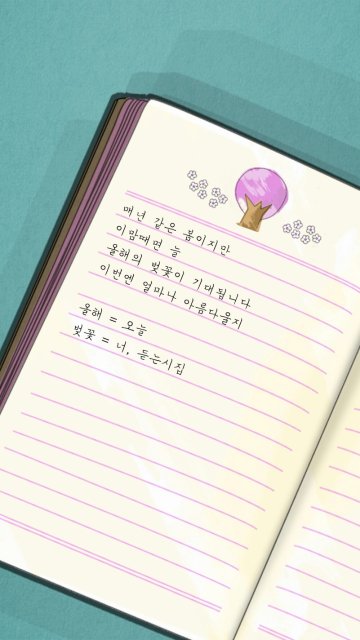 매년 같은 봄이지만
이맘때면 늘
올해의 벚꽃이 기대됩니다
이번엔 얼마나 아름다울지
올해 = 오늘
벚꽃 = 너, 듣는시집